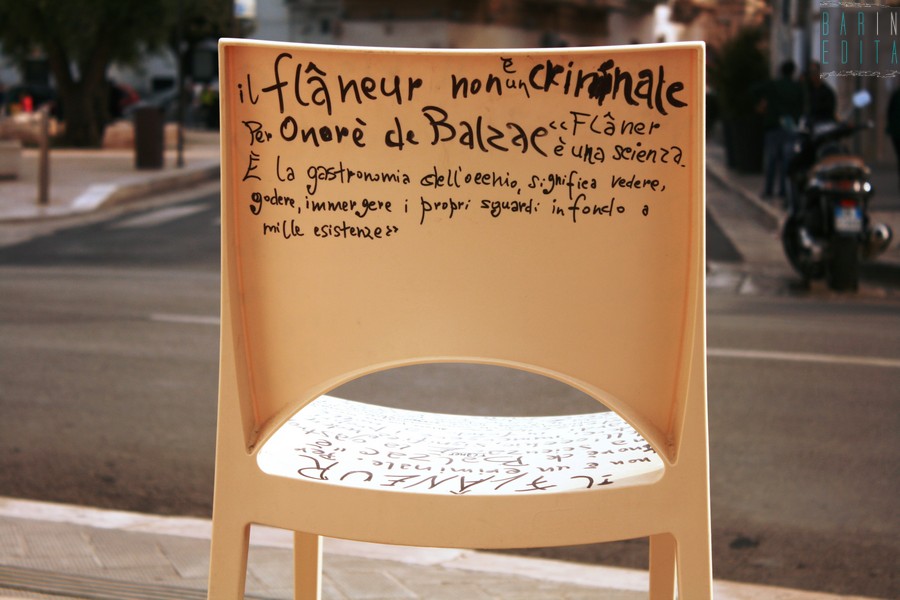 il flâneur non è un criminale
Per Onorè de Balzac «Flâner
è una scienza.
È la gastronomia dell'occhio, significa vedere,
godere, immergere i propri sguardi in fondo a
mille esistenze»
IL FLÂNEUR
non è un criminale. PER
Onorè de Balzac "
BARIN
EDITA